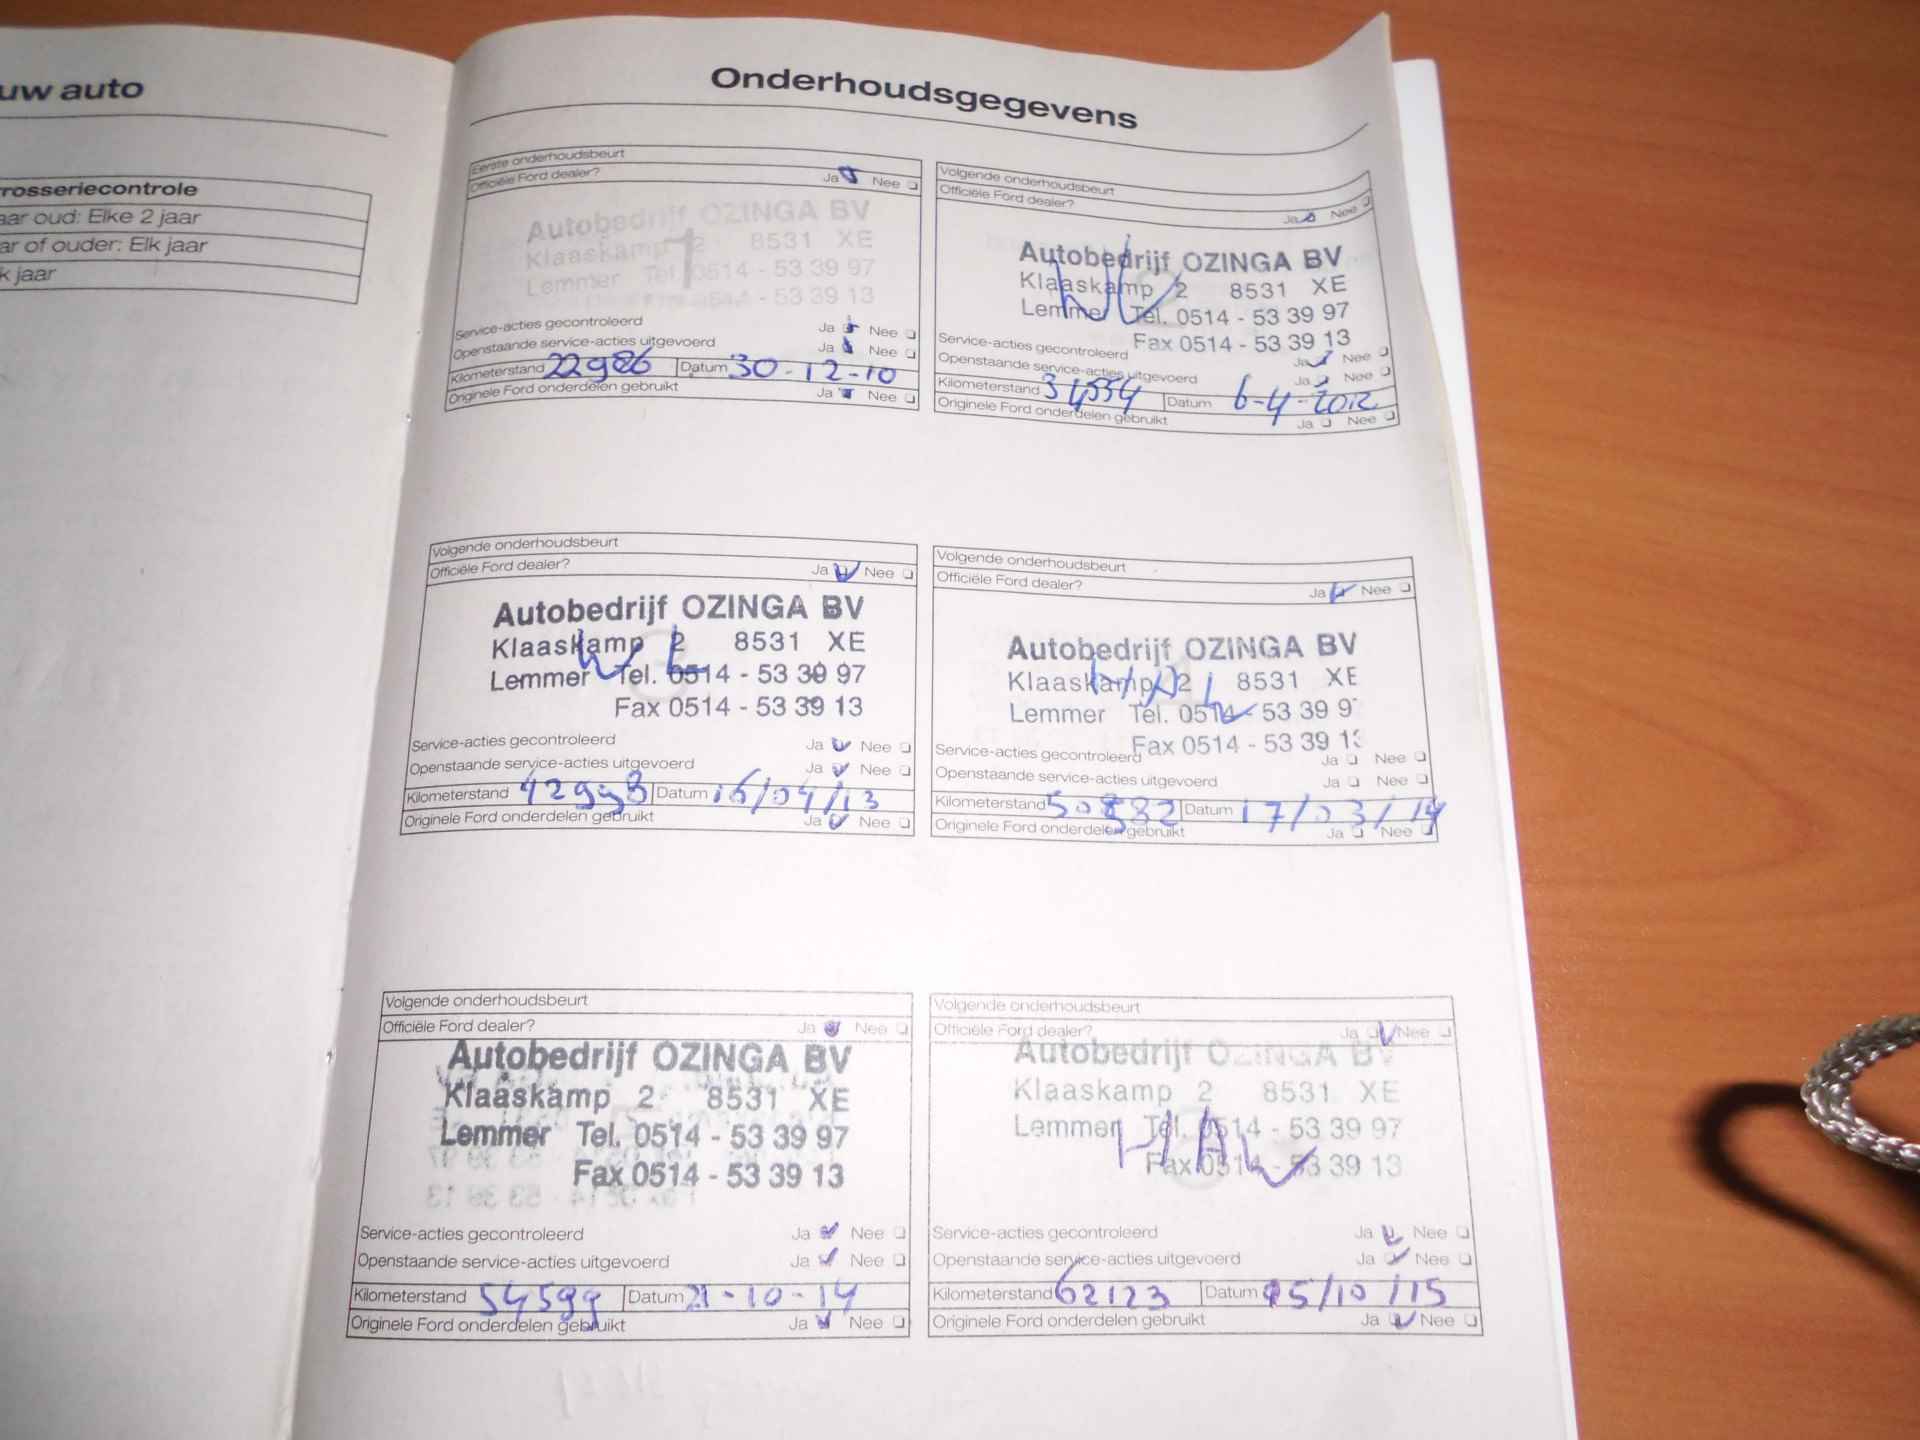 uw auto
rrosseriecontrole
aar oud: Elke 2 jaar
ar of ouder: Elk jaar
k jaar
Onderhoudsgegevens
Eerste onderhoudsbeurt
Officiële Ford dealer? Ja Nee
Autobedrijf OZINGA BV
Klaaskamp 2 8531 XE
Lemmer Tel. 0514 - 53 39 97
0514 - 53 39 13
1
Service-acties gecontroleerd Ja Nee
Openstaande service-acties uitgevoerd Ja Nee
Kilometerstand 22986 Datum 30-12-10
Originele Ford onderdelen gebruikt Ja Nee
Volgende onderhoudsbeurt
Officiële Ford dealer? Ja Nee
Autobedrijf OZINGA BV
Klaaskamp 2 8531 XE
Lemmer Tel. 0514 - 53 39 97
Fax 0514 - 53 39 13
Service-acties gecontroleerd Ja Nee
Openstaande service-acties uitgevoerd Ja Nee
Kilometerstand 34554 Datum 6-4-2012
Originele Ford onderdelen gebruikt Ja Nee
Volgende onderhoudsbeurt
Officiële Ford dealer? Ja Nee
Autobedrijf OZINGA BV
Klaaskamp 2 8531 XE
Lemmer Tel. 0514 - 53 39 97
Fax 0514 - 53 39 13
Service-acties gecontroleerd Ja Nee
Openstaande service-acties uitgevoerd Ja Nee
Kilometerstand 42998 Datum 16/04/13
Originele Ford onderdelen gebruikt Ja Nee
Volgende onderhoudsbeurt
Officiële Ford dealer? Ja Nee
Autobedrijf OZINGA BV
Klaaskamp 2 8531 XE
Lemmer Tel. 0514 - 53 39 9
Fax 0514 - 53 39 13
Service-acties gecontroleerd Ja Nee
Openstaande service-acties uitgevoerd Ja Nee
Kilometerstand Datum 17/03/14
Originele Ford onderdelen gebruikt Ja Nee
Volgende onderhoudsbeurt
Officiële Ford dealer? Ja Nee
Autobedrijf OZINGA BV
Klaaskamp 2 8531 XE
Lemmer Tel. 0514 - 53 39 97
Fax 0514 - 53 39 13
Service-acties gecontroleerd Ja Nee
Openstaande service-acties uitgevoerd Ja Nee
Kilometerstand 54599 Datum 21-10-14
Originele Ford onderdelen gebruikt Ja Nee
Volgende onderhoudsbeurt
Officiële Ford dealer? Ja Nee
Autobedrijf OZINGA BV
Klaaskamp 2 8531 XE
Lemmer Tel. 0514 - 53 39 97
Fax 0514 - 53 39 13
Service-acties gecontroleerd Ja Nee
Openstaande service-acties uitgevoerd Ja Nee
Kilometerstand 62123 Datum 05/10/15
Originele Ford onderdelen gebruikt Ja Nee